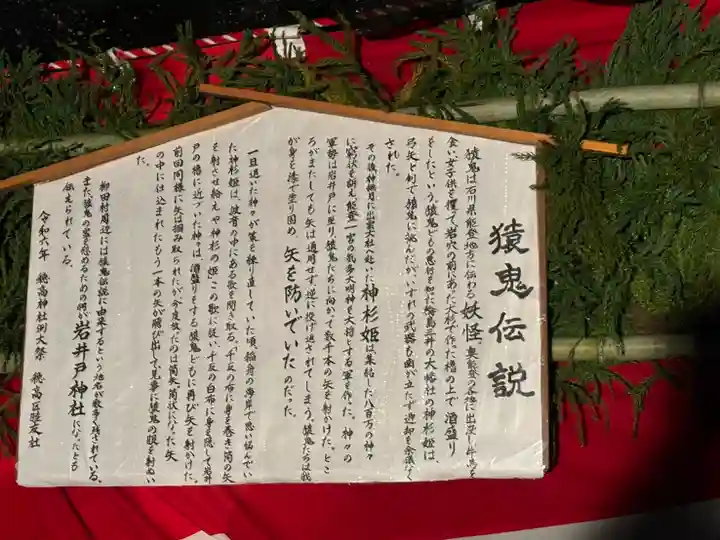 猿鬼伝説
猿鬼は石川県能登地方に伝わる妖怪、奥能登の各地に出没し牛馬を
食い女子供を攫って岩穴の前にあった大杉で作った櫓の上で酒盛り
をしたという猿鬼どもの悪行を知った輪島三井の大幡社の神杉姫は、
弓矢と剣で猿鬼に挑んだがいずれの武器も歯が立たず退却を余儀なく
された。
その後神無月に出雲大社へ赴いた神杉姫は集結した八百万の神々
に窮状を訴え能登一宮の気多大明神を大将とする軍を作った。神々の
軍勢は岩井戸に至り、猿鬼たちに向かって数千本の矢を射かけた。とこ
ろがまたしても矢は通用せず、逆に投げ返されてしまう。猿鬼たちは我
が身を漆で塗り固め、矢を防いでいたのだった。
一旦退いた神々が策を練り直していた頃、猫舟の海岸で思い悩んでい
た神杉姫は、波音の中にある歌を聞き取る。「千反の布に身を巻き筒の矢
を射させ給えや神杉の姫」この歌に従い千反の白布に身を隠して岩井
戸の櫓に近づいた神々は、酒盛りをする猿鬼どもに再び矢を射かけた。
前回同様に矢は掴み取られたが、今度放ったのは筒矢、筒状になった矢
の中に仕込まれたもう一本の矢が飛び出して見事に猿鬼の眼を射ぬい
た。
柳田村周辺には猿鬼伝説に由来するという地名が数多く残されている、
また猿鬼の霊を慰めるための祠が岩井戸神社になったとも
伝えられている。
令和六年 穂高神社例大祭 穂高区睦友社